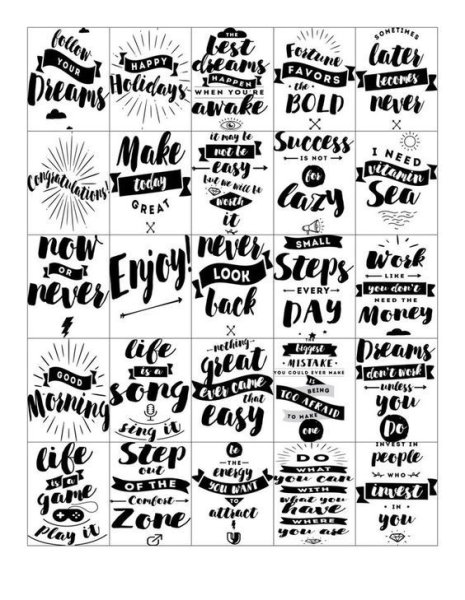 follow
YOUR
Dreams
HAPPY
Holidays
The
best
dreams
HAPPEN
WHEN YOU'RE
awake
Fortune
FAVORS
the
BOLD
SOMETIMES
later
becomes
never
Congratulations!
Make
today
GREAT
it may be
not be
easy
but we will be
worth
it
Success
IS NOT
for
lazy
I NEED
vitamin
Sea
now
OR
never
Enjoy!
never
LOOK
back
SMALL
Steps
EVERY
DAY
Work
LIKE
you don't
NEED THE
Money
GOOD
Morning
life
is a
song
sing it
nothing
great
ever came
that
easy
The
biggest
MISTAKE
YOU COULD EVER MAKE
IS
BEING
TOO AFRAID
TO MAKE
one
Dreams
don't work
unless
you
Do
life
is a
game
play it
Step
out
OF THE
Comfort
Zone
be
THE
energy
YOU WANT
TO
attract
DO
WHAT
you can
WITH
what you
have
WHERE
you are
INVEST IN
people
WHO
invest
IN
you